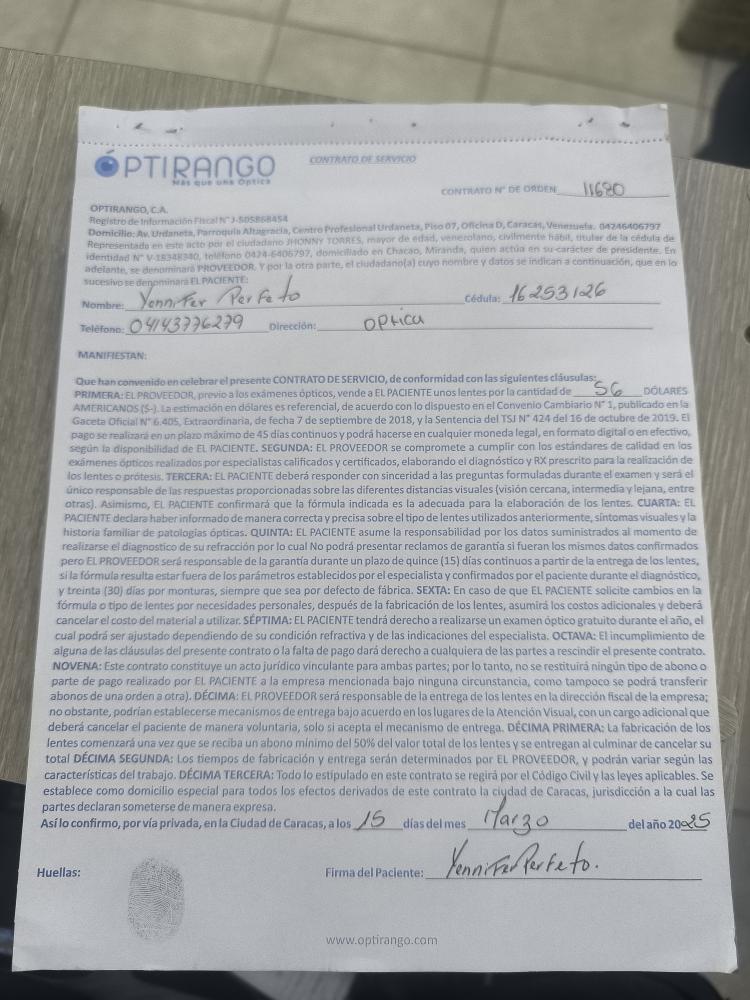 OPTIRANGO
Más que una Óptica
CONTRATO DE SERVICIO
CONTRATO N° DE ORDEN 11680
OPTIRANGO, C.A.
Registro de Información Fiscal N° J-505868454
Domicilio: Av. Urdaneta, Parroquia Altagracia, Centro Profesional Urdaneta, Piso 07, Oficina D, Caracas, Venezuela. 04246406797
Representada en este acto por el ciudadano JHONNY TORRES, mayor de edad, venezolano, civilmente hábil, titular de la cédula de
identidad N° V-18348340, teléfono 0424-6406797, domiciliado en Chacao, Miranda, quien actúa en su carácter de presidente. En
adelante, se denominará PROVEEDOR. Y por la otra parte, el ciudadano(a) cuyo nombre y datos se indican a continuación, que en lo
sucesivo se denominará EL PACIENTE:
Nombre: Yennifer Perfeto Cédula: 16253126
Teléfono: 04143776279 Dirección: optica
MANIFIESTAN:
Que han convenido en celebrar el presente CONTRATO DE SERVICIO, de conformidad con las siguientes cláusulas:
PRIMERA: EL PROVEEDOR, previo a los exámenes ópticos, vende a EL PACIENTE unos lentes por la cantidad de 56 DÓLARES
AMERICANOS ($-). La estimación en dólares es referencial, de acuerdo con lo dispuesto en el Convenio Cambiario N° 1, publicado en la
Gaceta Oficial N° 6.405, Extraordinaria, de fecha 7 de septiembre de 2018, y la Sentencia del TSJ N° 424 del 16 de octubre de 2019. El
pago se realizará en un plazo máximo de 45 días continuos y podrá hacerse en cualquier moneda legal, en formato digital o en efectivo,
según la disponibilidad de EL PACIENTE. SEGUNDA: EL PROVEEDOR se compromete a cumplir con los estándares de calidad en los
exámenes ópticos realizados por especialistas calificados y certificados, elaborando el diagnóstico y RX prescrito para la realización de
los lentes o prótesis. TERCERA: EL PACIENTE deberá responder con sinceridad a las preguntas formuladas durante el examen y será el
único responsable de las respuestas proporcionadas sobre las diferentes distancias visuales (visión cercana, intermedia y lejana, entre
otras). Asimismo, EL PACIENTE confirmará que la fórmula indicada es la adecuada para la elaboración de los lentes. CUARTA: EL
PACIENTE declara haber informado de manera correcta y precisa sobre el tipo de lentes utilizados anteriormente, síntomas visuales y la
historia familiar de patologías ópticas. QUINTA: EL PACIENTE asume la responsabilidad por los datos suministrados al momento de
realizarse el diagnostico de su refracción por lo cual No podrá presentar reclamos de garantía si fueran los mismos datos confirmados
pero EL PROVEEDOR será responsable de la garantía durante un plazo de quince (15) días continuos a partir de la entrega de los lentes,
si la fórmula resulta estar fuera de los parámetros establecidos por el especialista y confirmados por el paciente durante el diagnóstico,
y treinta (30) días por monturas, siempre que sea por defecto de fábrica. SEXTA: En caso de que EL PACIENTE solicite cambios en la
fórmula o tipo de lentes por necesidades personales, después de la fabricación de los lentes, asumirá los costos adicionales y deberá
cancelar el costo del material a utilizar. SÉPTIMA: EL PACIENTE tendrá derecho a realizarse un examen óptico gratuito durante el año, el
cual podrá ser ajustado dependiendo de su condición refractiva y de las indicaciones del especialista. OCTAVA: El incumplimiento de
alguna de las cláusulas del presente contrato o la falta de pago dará derecho a cualquiera de las partes a rescindir el presente contrato.
NOVENA: Este contrato constituye un acto jurídico vinculante para ambas partes; por lo tanto, no se restituirá ningún tipo de abono o
parte de pago realizado por EL PACIENTE a la empresa mencionada bajo ninguna circunstancia, como tampoco se podrá transferir
abonos de una orden a otra). DÉCIMA: EL PROVEEDOR será responsable de la entrega de los lentes en la dirección fiscal de la empresa;
no obstante, podrían establecerse mecanismos de entrega bajo acuerdo en los lugares de la Atención Visual, con un cargo adicional que
deberá cancelar el paciente de manera voluntaria, solo si acepta el mecanismo de entrega. DÉCIMA PRIMERA: La fabricación de los
lentes comenzará una vez que se reciba un abono mínimo del 50% del valor total de los lentes y se entregan al culminar de cancelar su
total DÉCIMA SEGUNDA: Los tiempos de fabricación y entrega serán determinados por EL PROVEEDOR, y podrán variar según las
características del trabajo. DÉCIMA TERCERA: Todo lo estipulado en este contrato se regirá por el Código Civil y las leyes aplicables. Se
establece como domicilio especial para todos los efectos derivados de este contrato la ciudad de Caracas, jurisdicción a la cual las
partes declaran someterse de manera expresa.
Así lo confirmo, por vía privada, en la Ciudad de Caracas, a los 15 días del mes Marzo del año 2025
Huellas: Firma del Paciente: Yennifer Perfeto.
www.optirango.com